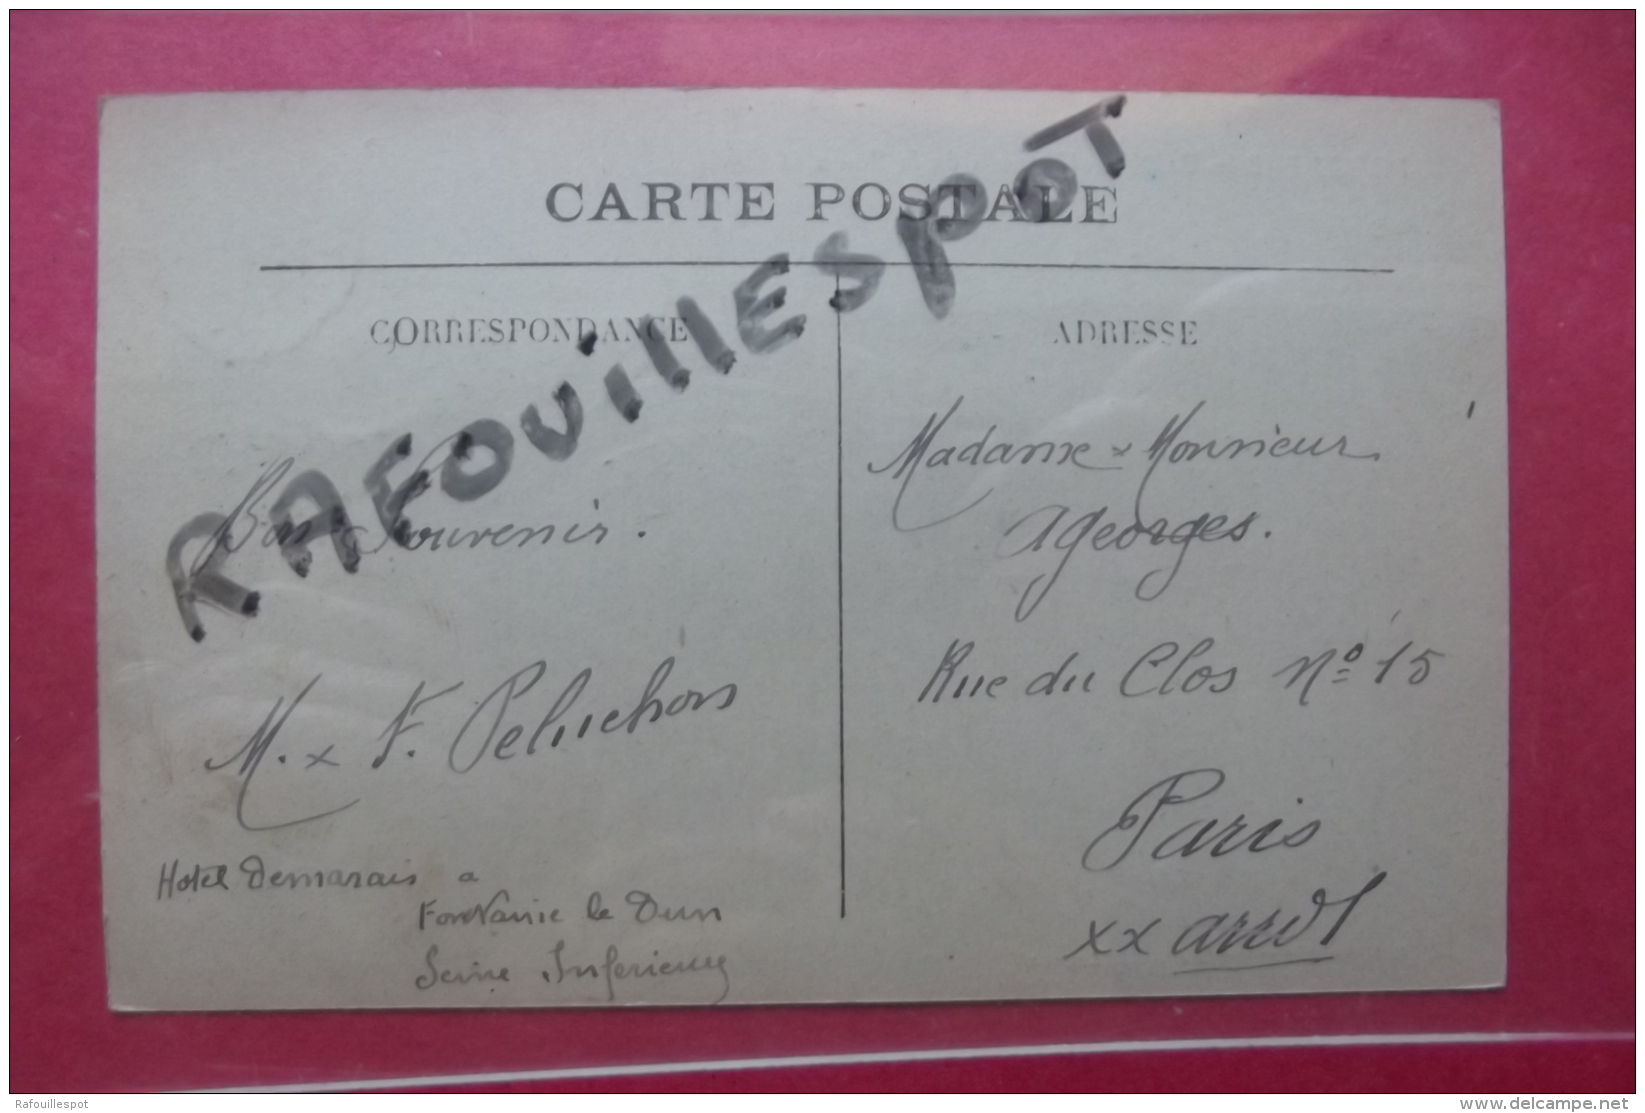 CARTE POSTALE
CORRESPONDANCE
ADRESSE
RAFOUillESPOT
Bon Souvenir.
M. x F. Peluchon
Hotel Demarais a
Fontaine le Dun
Seine Inferieure
Madame x Monsieur
Ageorges.
Rue du Clos Nº 15
Paris
XX arrdt
Rafouillespot
www.delcampe.net